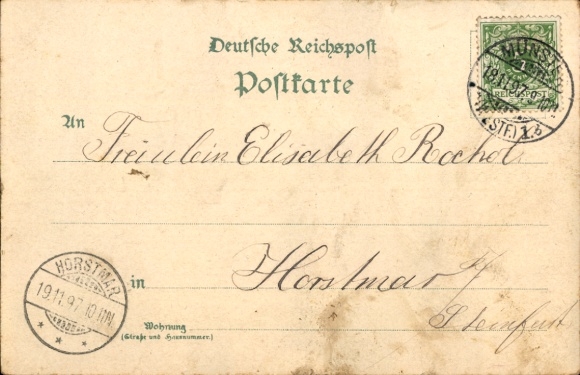 Deutsche Reichspost
Postkarte
MÜNSTER
18.11.97. 9-10N.
(WESTF.) 1. b
REICHSPOST
An
Fräulein Elisabeth Rochol
HORSTMAR
19.11.97. 10-11N.
in
Horstmar
Steinfurt
Wohnung
(Straße und Hausnummer.)